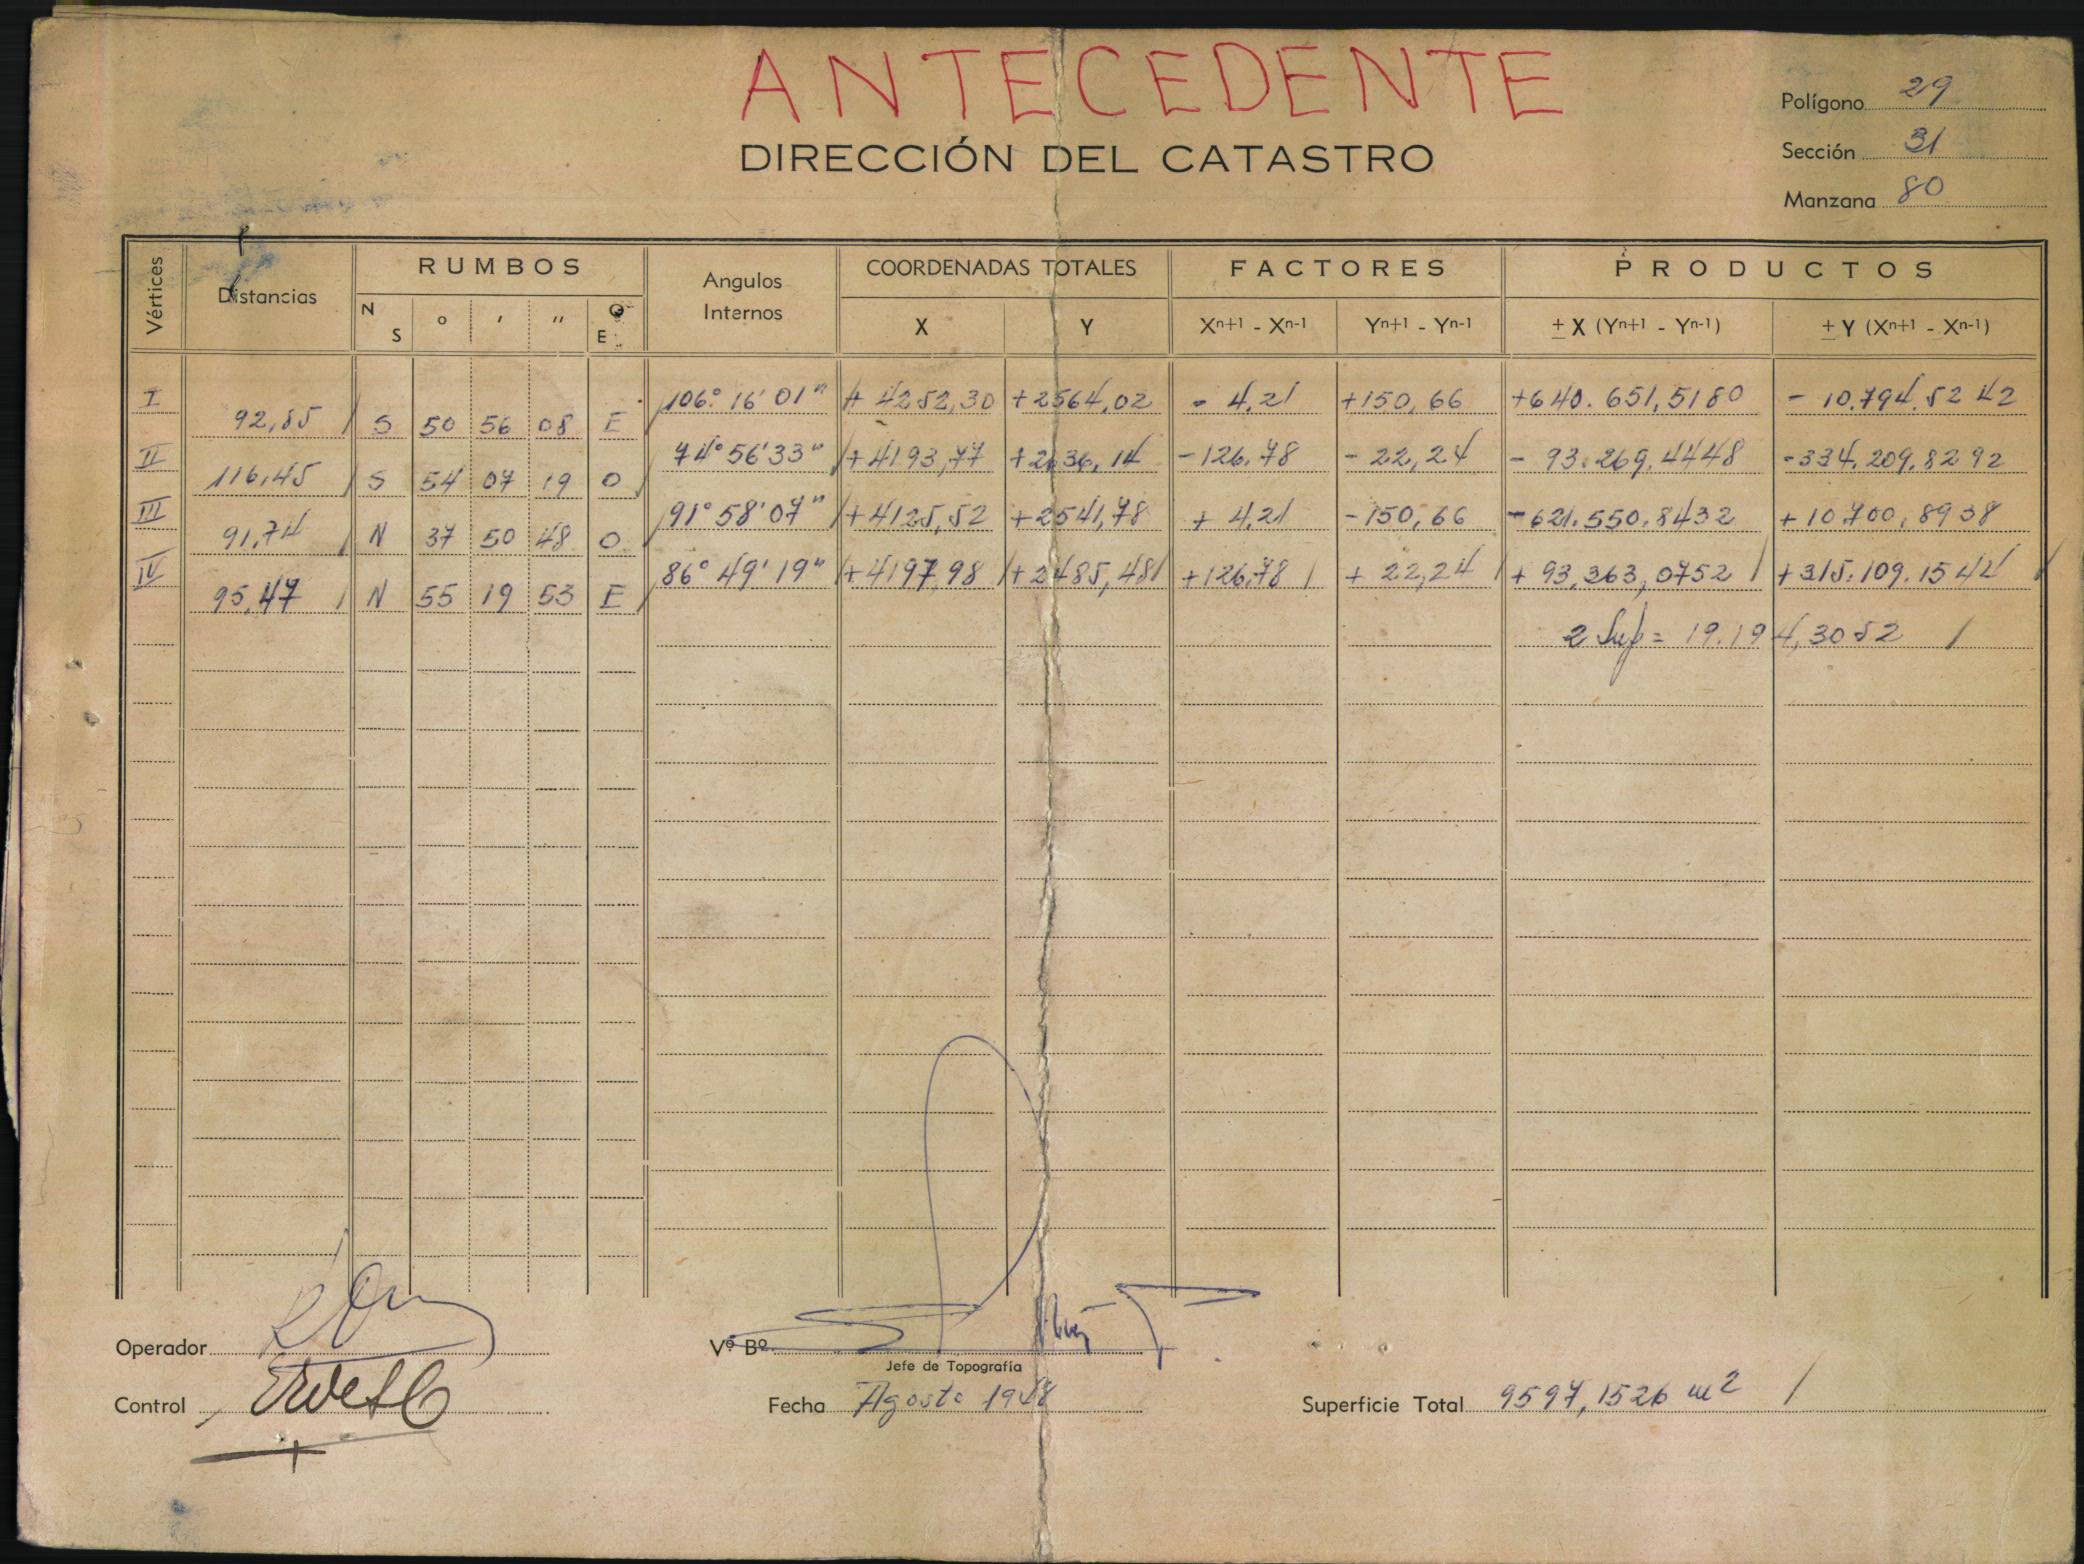 ANTECEDENTE
DIRECCIÓN DEL CATASTRO
Polígono 29
Sección 31
Manzana 80
Vértices Distancias RUMBOS Angulos Internos COORDENADAS TOTALES FACTORES PRODUCTOS
N S ° ' " O E X Y Xn+1 - Xn-1 Yn+1 - Yn-1 ± X (Yn+1 - Yn-1) ± Y (Xn+1 - Xn-1)
I 106° 16' 01" + 4252,30 +2564,02 - 4,21 +150,66 +640.651,5180 - 10.794,5242
92,85 S 50 56 08 E
II 74° 56' 33" +4193,77 +2636,14 -126,78 - 22,24 - 93.269,4448 -334.209,8292
116,45 S 54 07 19 O
III 91° 58' 07" +4125,52 +2541,78 + 4,21 -150,66 -621.550,8432 +10.700,8938
91,74 N 37 50 48 O
IV 86° 49' 19" +4197,98 +2485,48 +126,78 + 22,24 + 93,363,0752 +315.109.1544
95,47 N 55 19 53 E
2 Sup = 19.194,3052
Operador
Vº Bº
Jefe de Topografía
Control
Fecha Agosto 1948
Superficie Total 9597,1526 m2